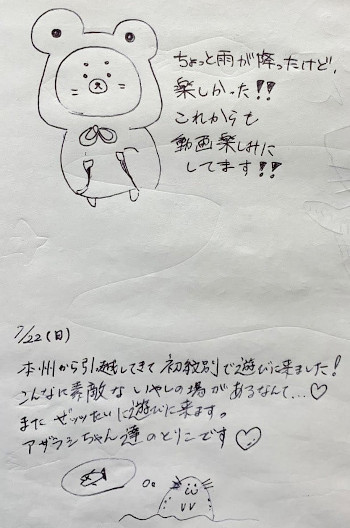 ちょっと雨が降ったけど、
楽しかった!!
これからも
動画楽しみに
してます!!
7/22(日)
本州から引越してきて初紋別で遊びに来ました!
こんなに素敵ないやしの場があるなんて…♡
またぜッたいに遊びに来ます。
アザラシちゃん達のとりこです♡